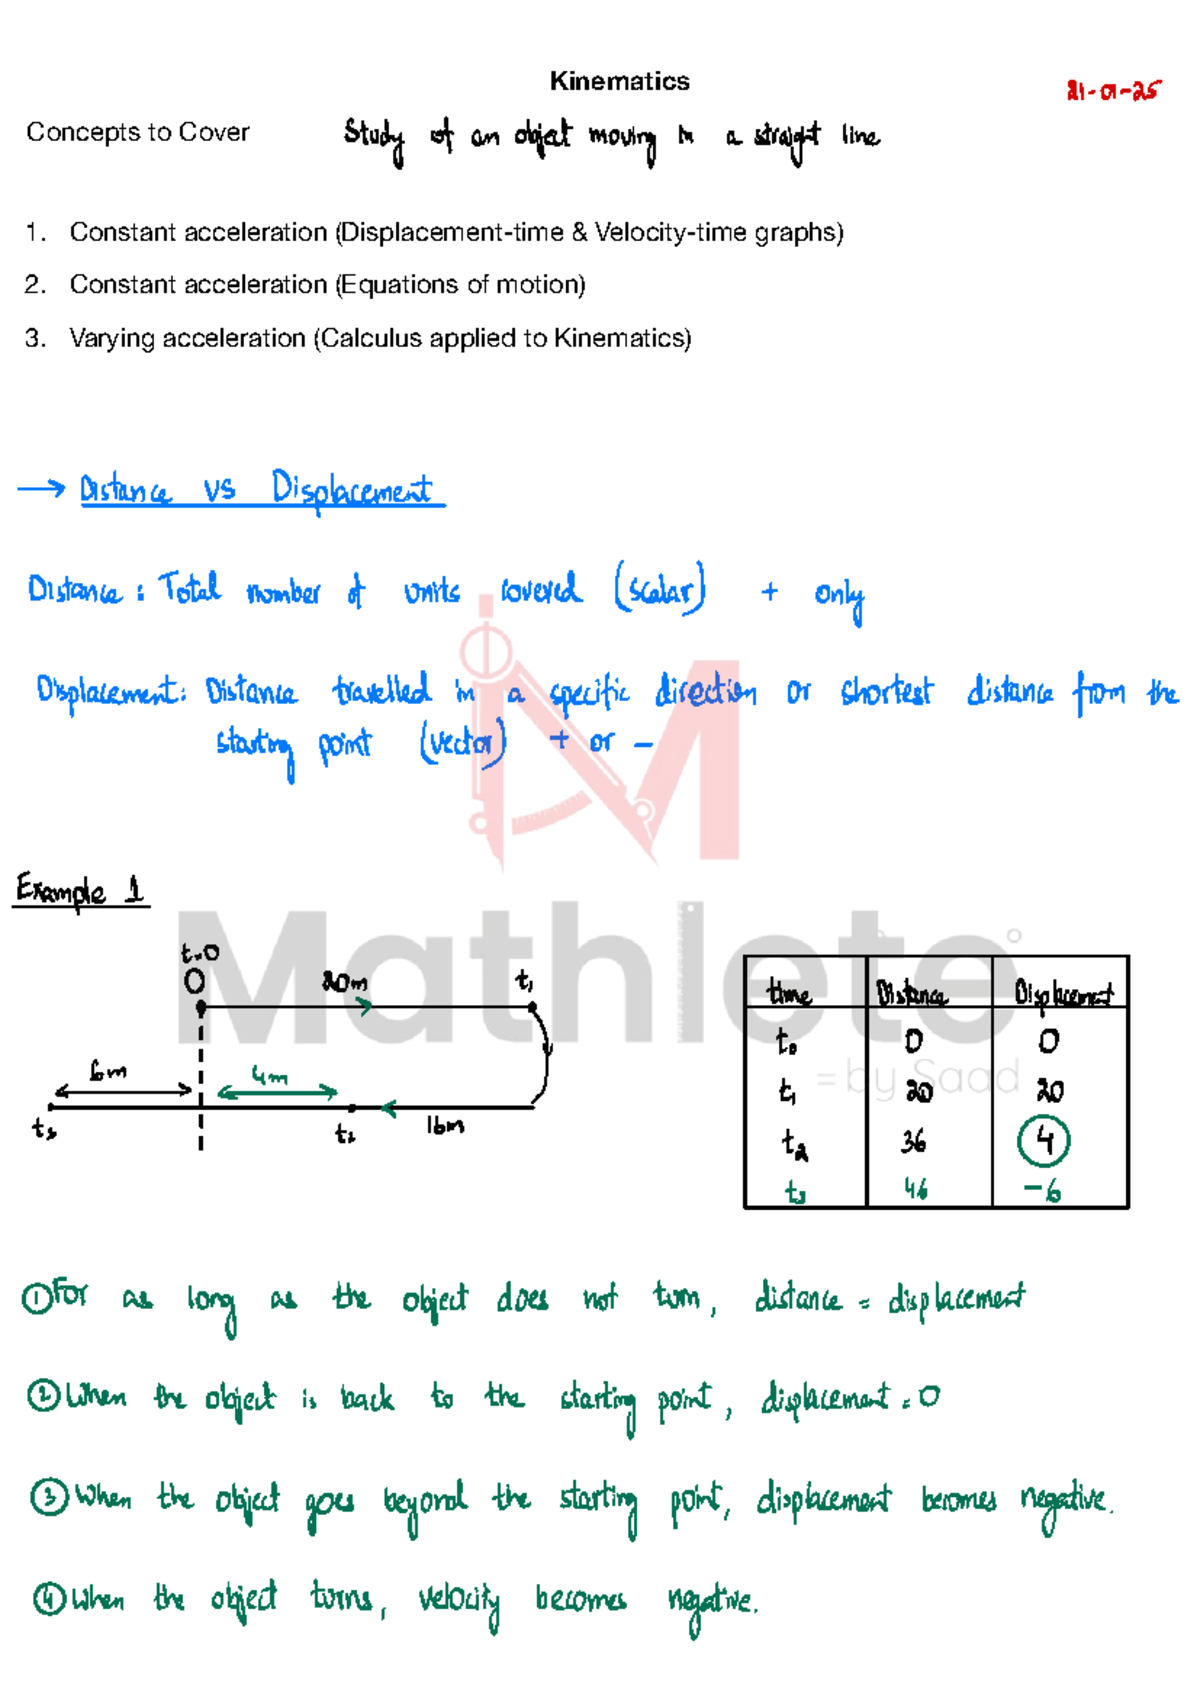 Kinematics
21-01-25
Concepts to Cover Study of an object moving in a straight line
1. Constant acceleration (Displacement-time & Velocity-time graphs)
2. Constant acceleration (Equations of motion)
3. Varying acceleration (Calculus applied to Kinematics)
→ Distance vs Displacement
Distance : Total number of units covered (scalar) + only
Displacement: Distance travelled in a specific direction or shortest distance from the
starting point (vector) + or –
Example 1
Mathlete
= by Saad
t=0
O 20m t₁
6m 4m
t₃ t₂ 16m
time Distance Displacement
t₀ 0 0
t₁ 20 20
t₂ 36 4
t₃ 46 -6
① For as long as the object does not turn, distance = displacement
② When the object is back to the starting point, displacement = 0
③ When the object goes beyond the starting point, displacement becomes negative.
④ When the object turns, velocity becomes negative.